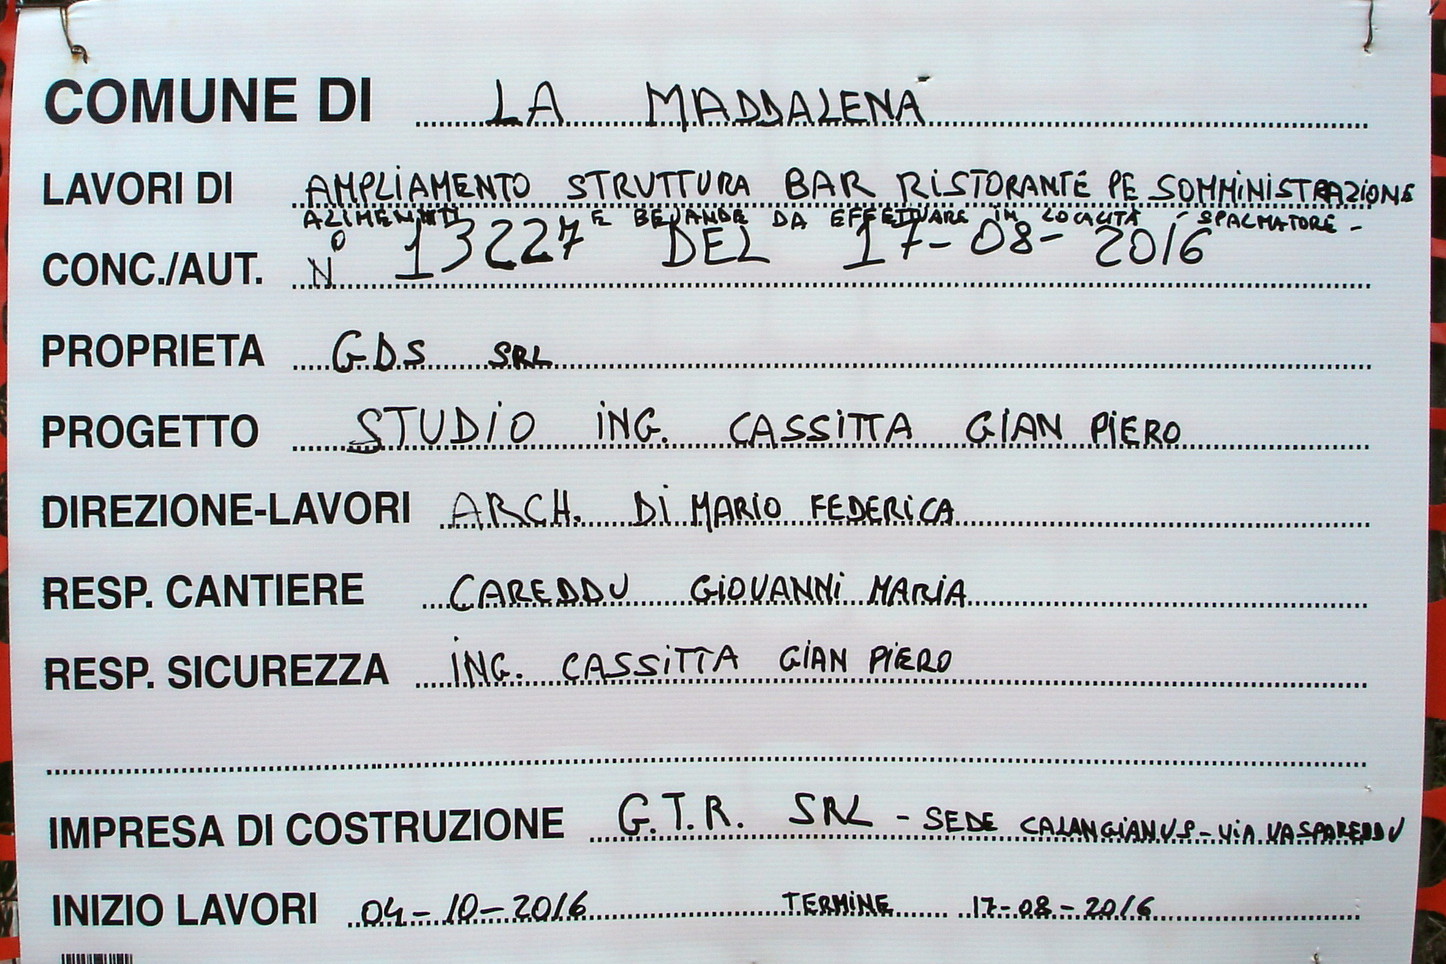 COMUNE DI LA MADDALENA
LAVORI DI AMPLIAMENTO STRUTTURA BAR RISTORANTE PE SOMMINISTRAZIONE
ALIMENTI E BEVANDE DA EFFETTUARE IN LOCALITÀ - SPALMATORE -
CONC./AUT. N° 13227 DEL 17-08-2016
PROPRIETA G.D.S SRL
PROGETTO STUDIO ING. CASSITTA GIAN PIERO
DIREZIONE-LAVORI ARCH. DI MARIO FEDERICA
RESP. CANTIERE CAREDDU GIOVANNI MARIA
RESP. SICUREZZA ING. CASSITTA GIAN PIERO
IMPRESA DI COSTRUZIONE G.T.R. SRL - SEDE CALANGIANUS - VIA VASPAREDDU
INIZIO LAVORI 04-10-2016 TERMINE 17-08-2016